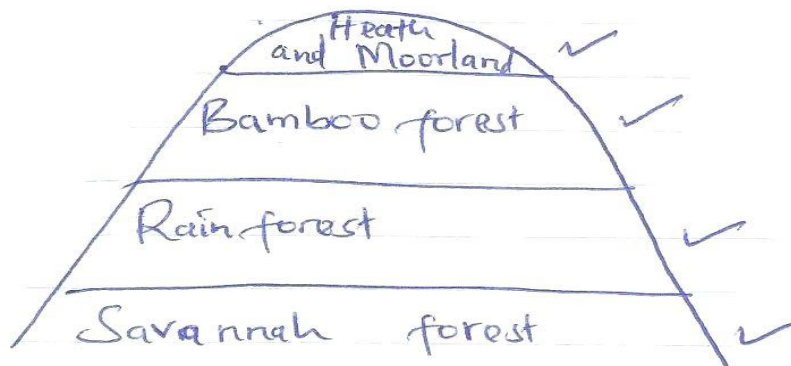 Heath
and Moorland
Bamboo forest
Rain forest
Savannah forest